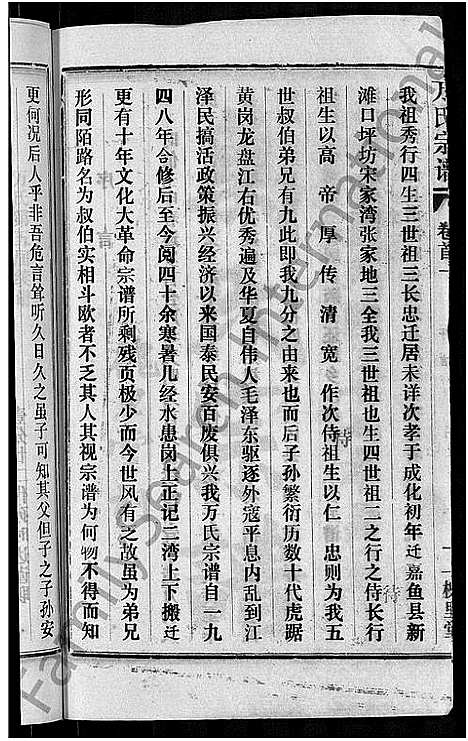 万氏宗谱 卷首一
我祖秀行四生三世祖三长忠迁居未详次孝于成化初年迁嘉鱼县新
滩口坪坊宋家湾张家地三全我三世祖也生四世祖二之行之侍长行
祖生以高帝厚传清宽作次侍祖生以仁忠则为我五
世叔伯弟兄有九此即我九分之由来也而后子孙繁衍历数十代虎踞
黄岗龙盘江右优秀遍及华夏自伟人毛泽东驱逐外寇平息内乱到江
泽民搞活政策振兴经济以来国泰民安百废俱兴我万氏宗谱自一九
四八年合修后至今阅四十余寒暑几经水患岗上正记二湾上下搬迁
更有十年文化大革命宗谱所剩残页极少而今世风有之故虽为弟兄
形同陌路名为叔伯实相斗欧者不乏其人其视宗谱为何物不得而知
更何况后人乎非吾危言耸听久日久之虽子可知其父但子之子孙安
待
待
FamilySearch International